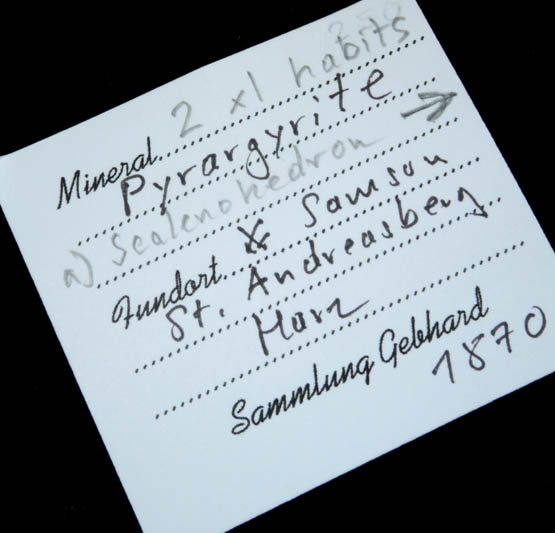 2 xl habits
Mineral
Pyrargyrite →
a) Scalenohedron
Fundort ⚒ Samson
St. Andreasberg
Harz
Sammlung Gebhard
1870